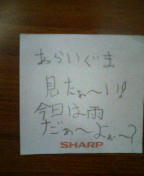 あらいぐま
見たぁ〜い!!
今日は雨
だぁ〜よぉ〜?
SHARP